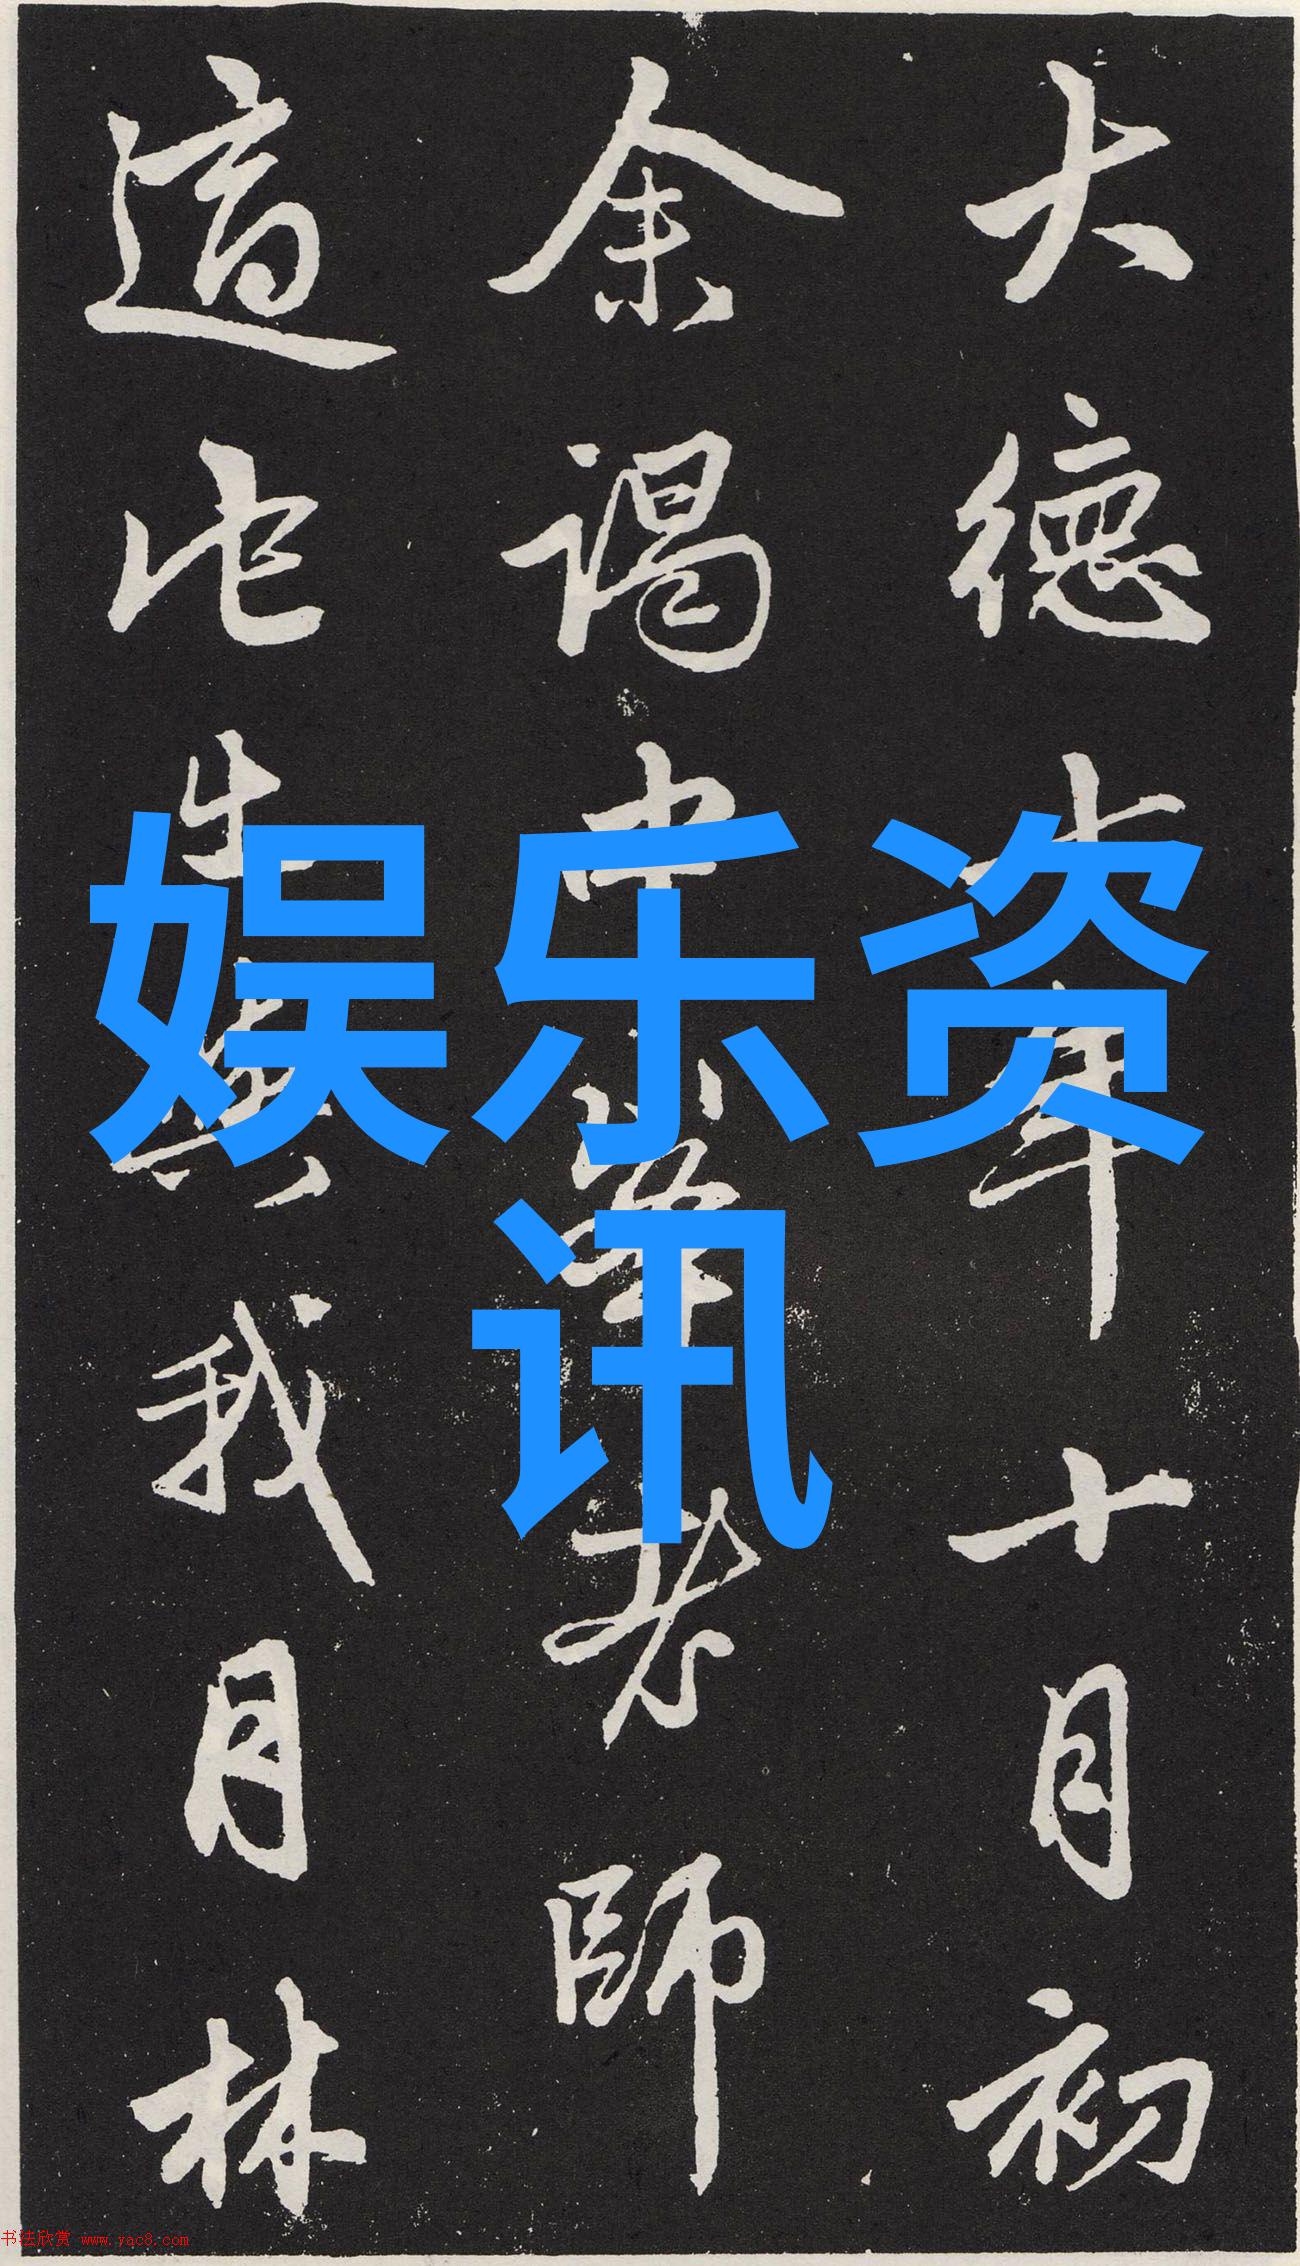 大德十年十月初
余謁中峯老師
適此生與我月林
娱乐资
讯
书法欣赏 www.yac8.com